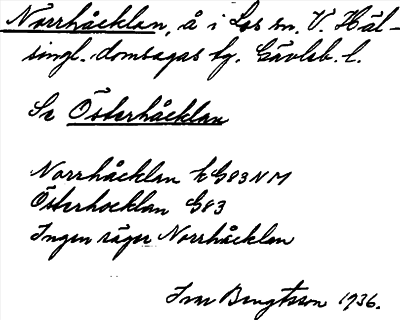 Norrhåcklan, å i Los sn. V. Häl-
singl. domsagas tg. Gävleb. l.
Se Österhåcklan
Norrhåcklan G83NM
Österhocklan G83
Ingen säger Norrhåcklan
Ivar Bengtsson 1936.